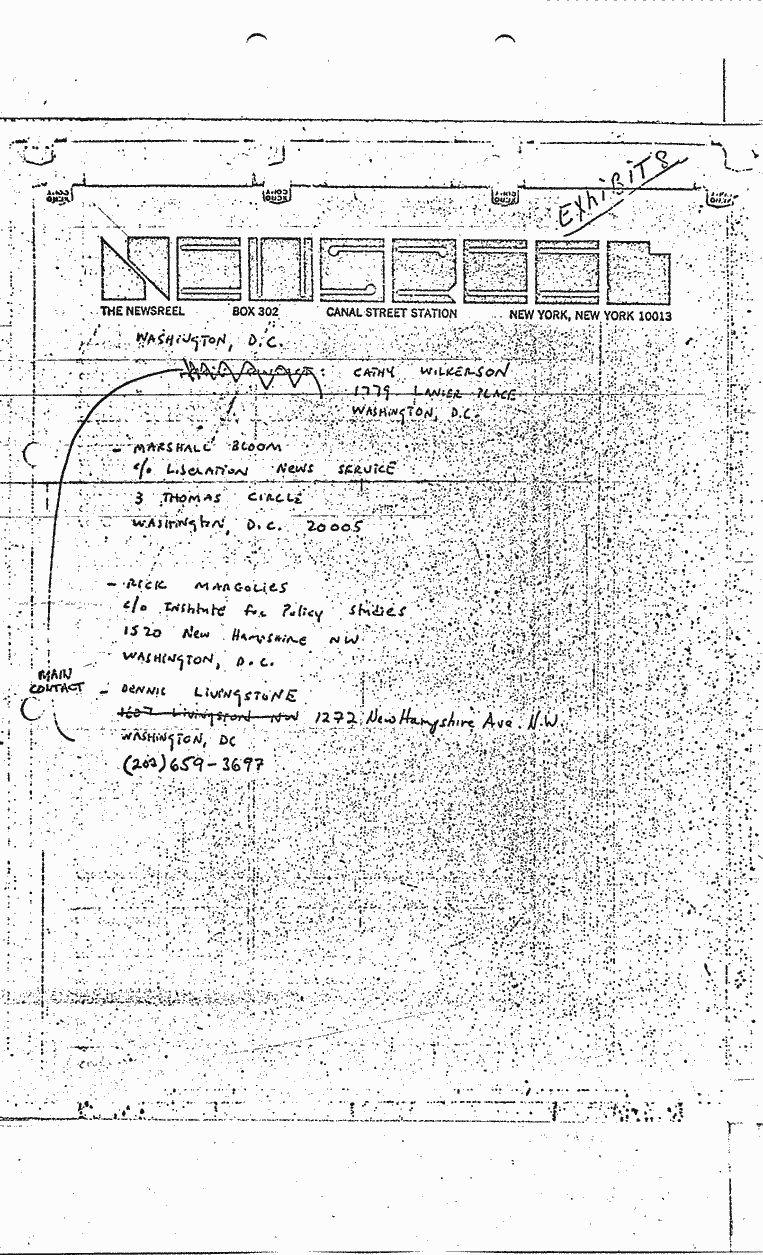 EXHIBITS
NEWSREEL
THE NEWSREEL BOX 302 CANAL STREET STATION NEW YORK, NEW YORK 10013
WASHINGTON, D.C.
: CATHY WILKERSON
1779 LANIER PLACE
WASHINGTON, D.C.
- MARSHALL BLOOM
c/o LIBERATION NEWS SERVICE
3 THOMAS CIRCLE
WASHINGTON, D.C. 20005
- RICK MARGOLIES
c/o Institute for Policy Studies
1520 New HAMPSHIRE NW
WASHINGTON, D.C.
MAIN
CONTACT
- DENNIS LIVINGSTONE
1607 Livingston NW 1272 New Hampshire Ave. N.W.
WASHINGTON, DC
(202) 659-3697